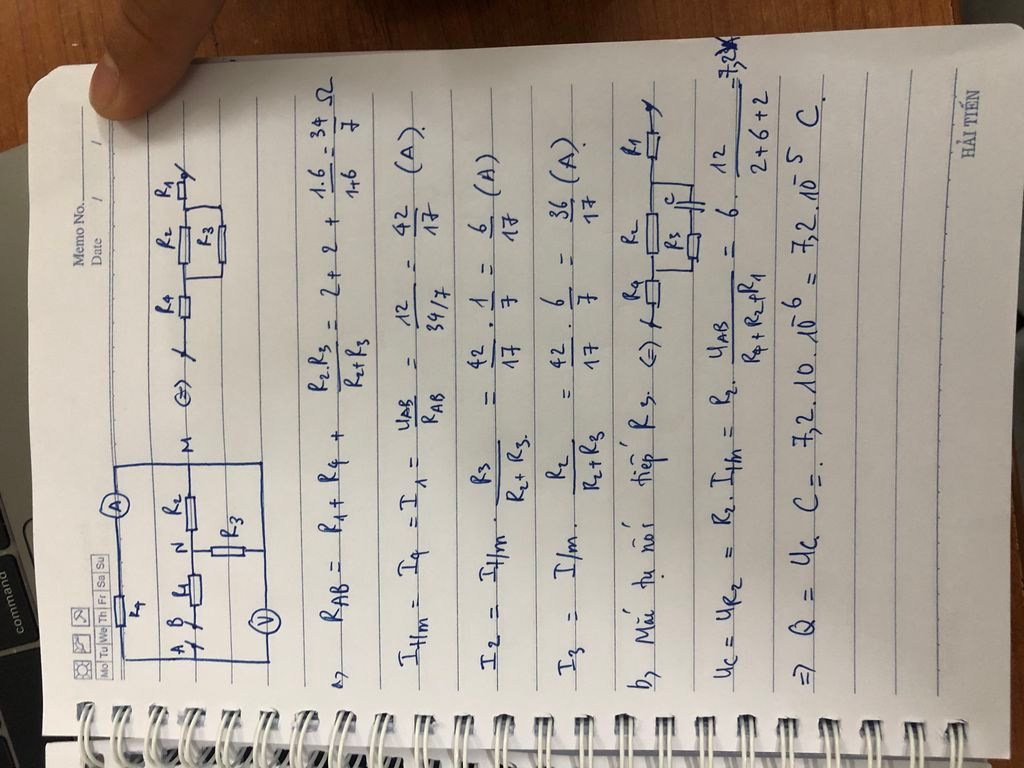 command
Memo No.
Mo Tu We Th Fr Sa Su
Date / /
R4 A
A B R1 N R2 M (=) R4 R2 R1
R3 R3
V
a, RAB = R1 + R4 + R2.R3 / R2+R3 = 2 + 2 + 1.6 / 1+6 = 34/7 Ω
I_{t/m} = I4 = I1 = UAB / RAB = 12 / 34/7 = 42/17 (A).
I2 = I_{t/m} . R3 / R2 + R3. = 42/17 . 1/7 = 6/17 (A)
I3 = I/m. R2 / R2+R3 = 42/17 . 6/7 = 36/17 (A).
b, Mắc tụ nối tiếp R3. (=) R4 R2 R1
R3 C
Uc = UR2 = R2. I_{t/m} = R2. UAB / R4+R2+R1 = 6. 12 / 2+6+2 = 7,2V
=) Q = Uc C = 7,2.10.10^-6 = 7,2.10^-5 C.
HẢI TIẾN